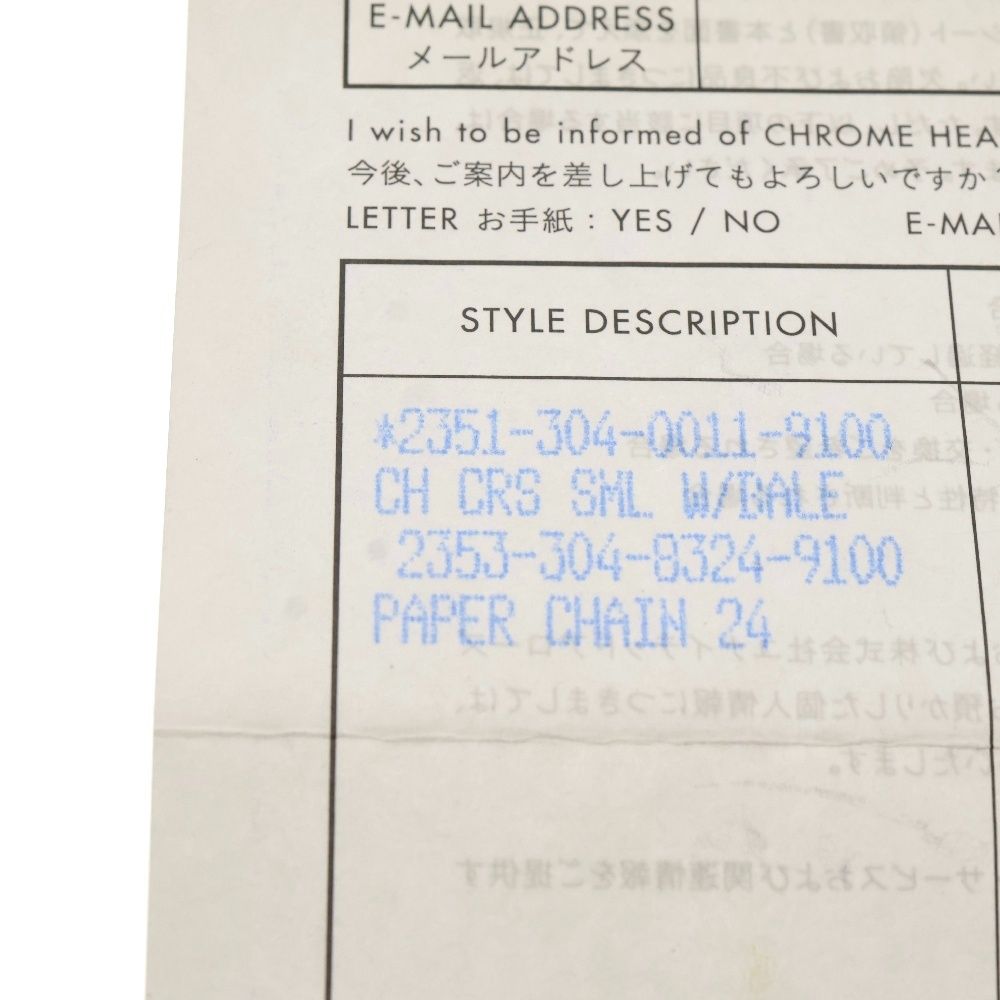 E-MAIL ADDRESS
メールアドレス
I wish to be informed of CHROME HEA
今後、ご案内を差し上げてもよろしいですか
LETTER お手紙 : YES / NO E-MAI
STYLE DESCRIPTION
*2351-304-0011-9100
CH CRS SML W/BALE
2353-304-8324-9100
PAPER CHAIN 24